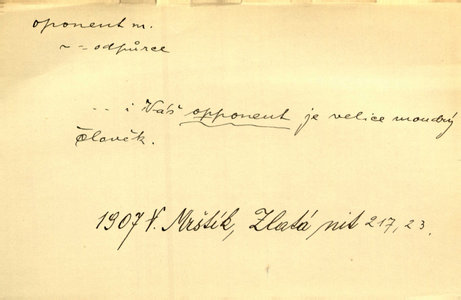 oponent m.
~ = odpůrce
.. i Váš opponent je velice moudrý
člověk.
1907 V. Mrštík, Zlatá nit 217, 23.